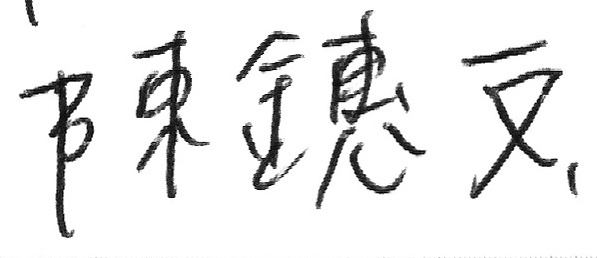 陳鏸文